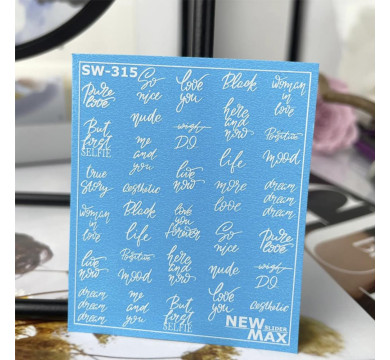 SW-315
So
nice
love
you
Black
woman
in
love
Pure
love
nude
here
and
now
But
first
SELFIE
me
and
you
DI
life
Positive
mood
true
story
aesthetic
live
now
more
love
dream
dream
dream
woman
in
love
Black
life
love
you
forever
So
nice
Pure
love
live
now
Positive
mood
here
and
now
nude
DI
dream
dream
dream
me
and
you
But
first
SELFIE
love
you
aesthetic
NEW
SLIDER
MAX